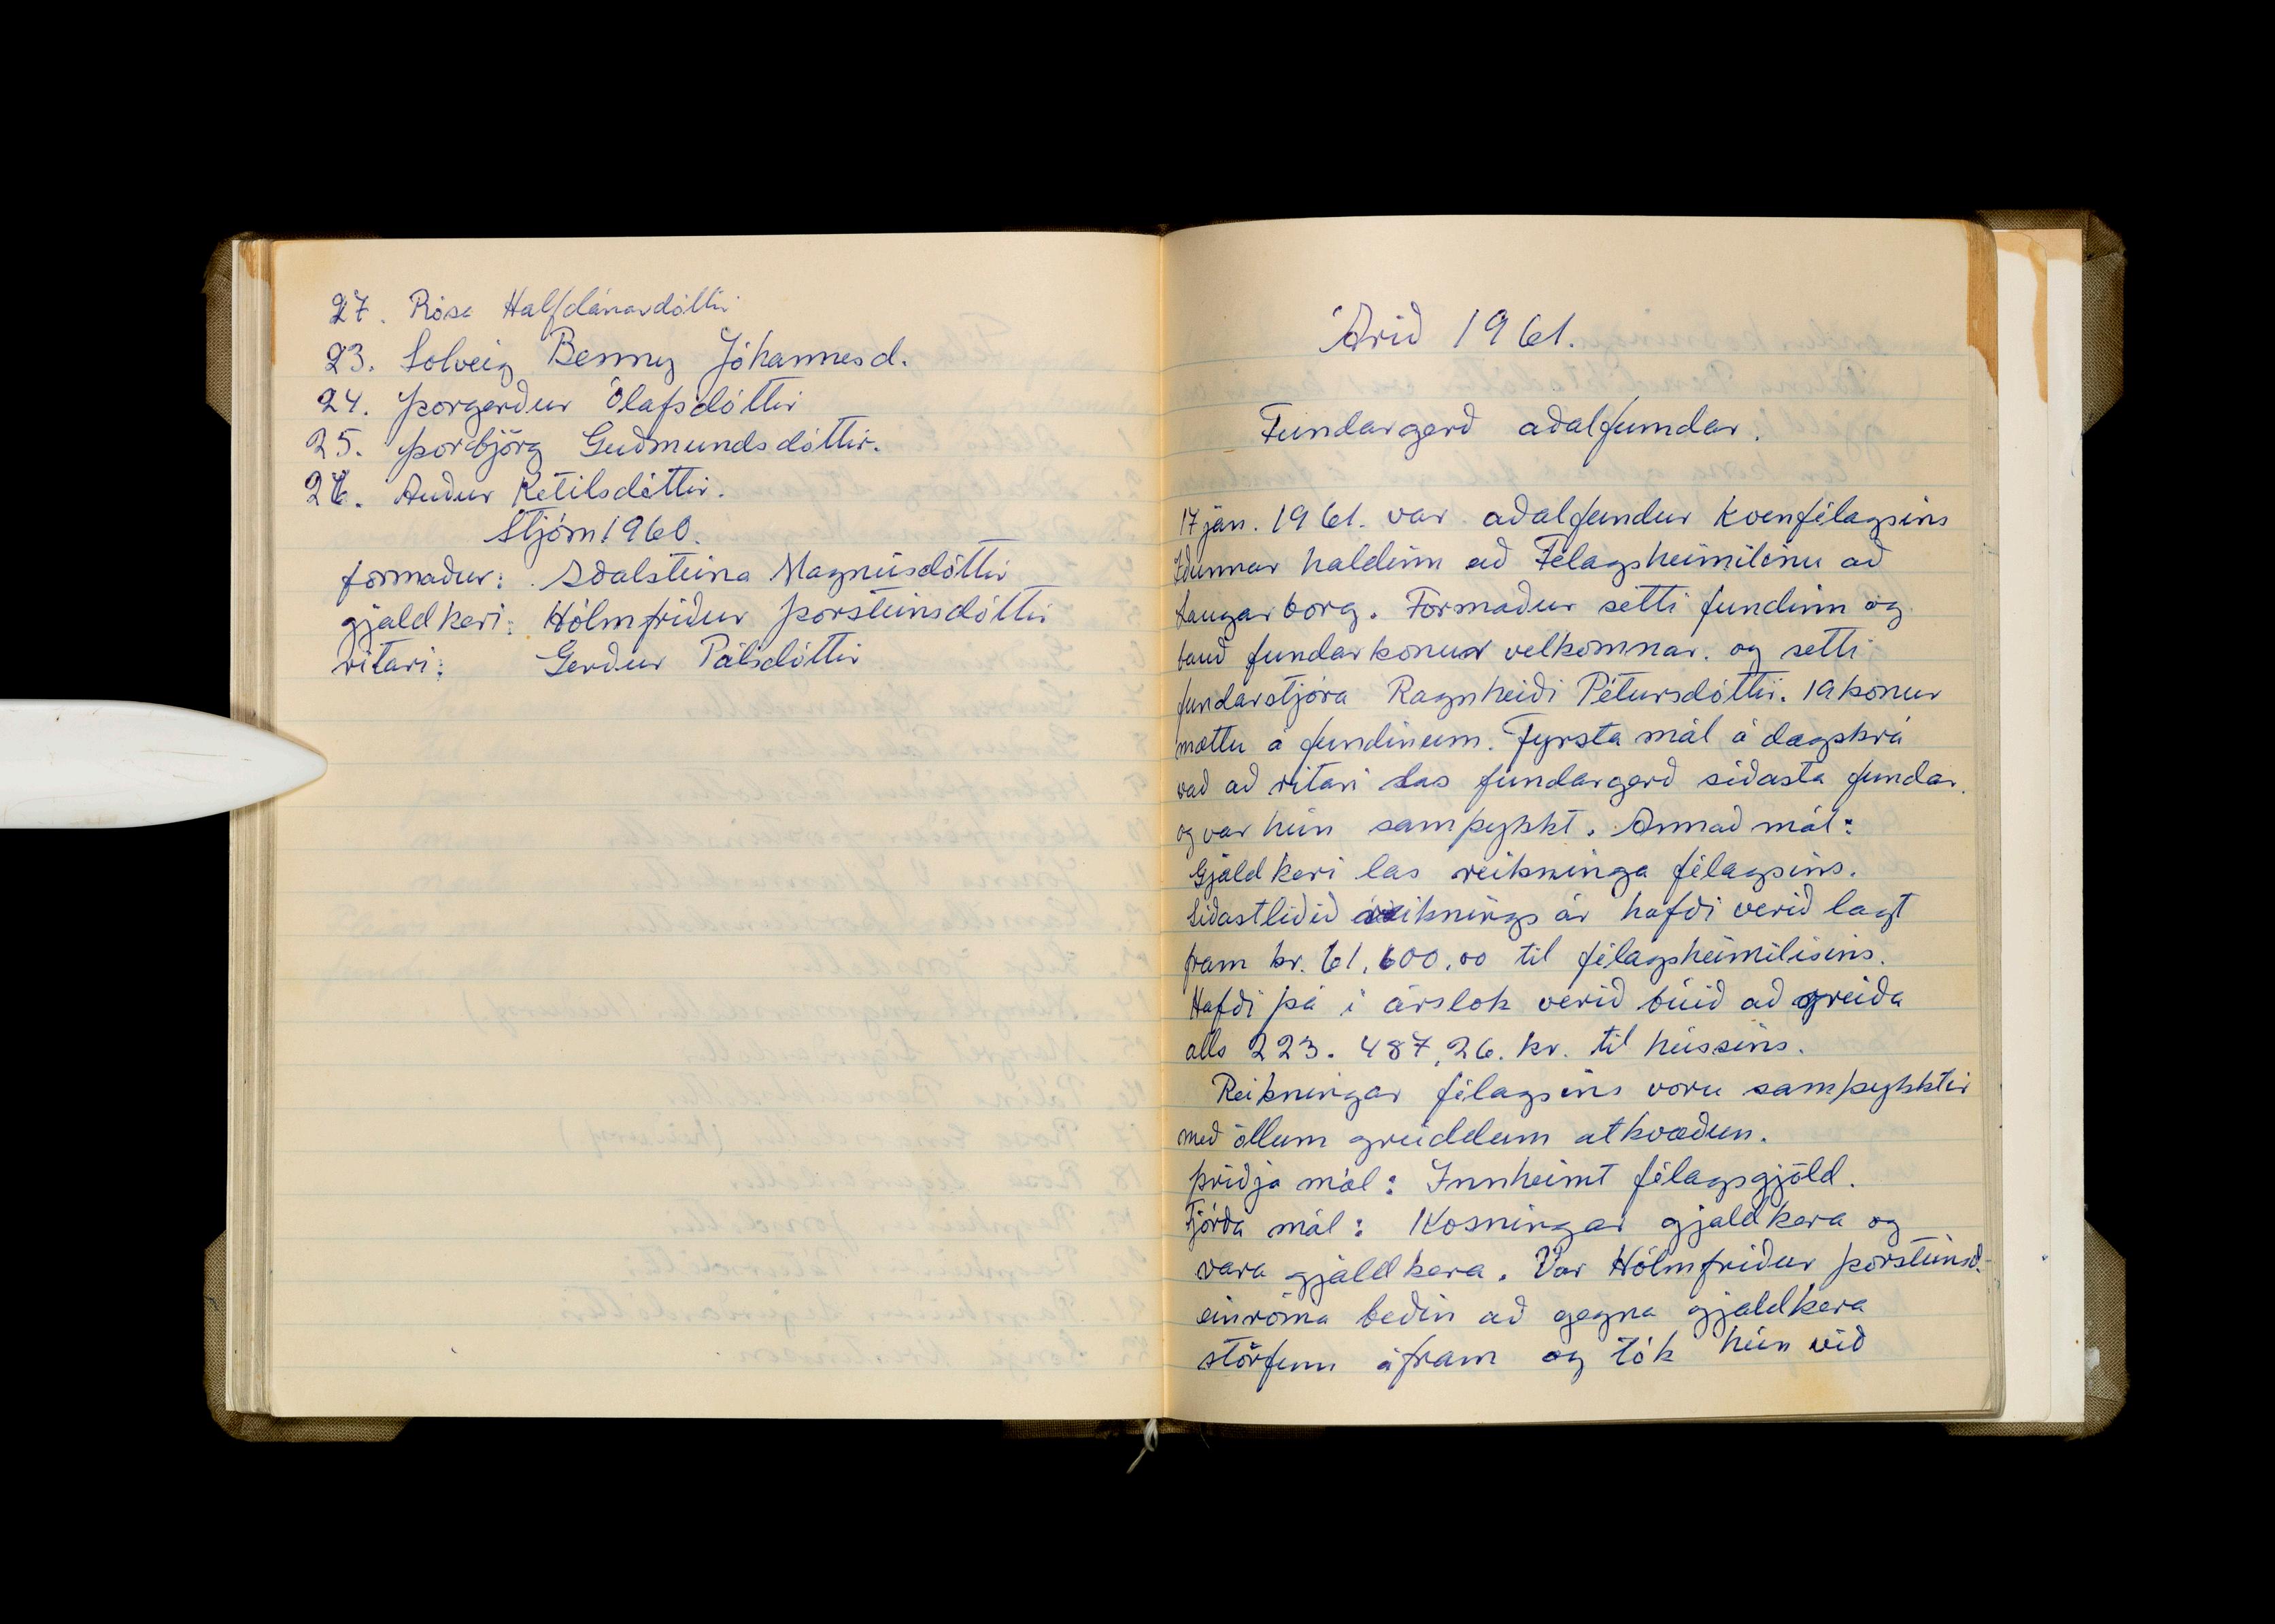 27. Rósa Halfdánardóttir
23. Solveig Benny Jóhannesd.
24. Þorgerður Ólafsdóttir
25. Þorbjörg Guðmundsdóttir.
26. Auður Ketilsdóttir.
Stjórn 1960.
formaður: Aðalsteina Magnúsdóttir
gjaldkeri: Hólmfríður Þorsteinsdóttir
ritari: Gerður Pálsdóttir
Árið 1961.
Fundargerð aðalfundar.
17 jan. 1961. var aðalfundur Kvenfélagsins
Iðunnar haldinn að Félagsheimilinu að
Laugarborg. Formaður setti fundinn og
bauð fundarkonur velkomnar. og setti
fundarstjóra Ragnheiði Pétursdóttir. 19 konur
mættu á fundinum. Fyrsta mál á dagskrá
var að ritari las fundargerð síðasta fundar.
og var hún samþykkt. Annað mál:
Gjaldkeri las reikninga félagsins.
Síðastliðið reiknings ár hafði verið lagt
fram kr. 61.600.00 til félagsheimilisins.
Hafði þá í árslok verið búið að greiða
alls 223.487,26. kr. til hússins.
Reikningar félagsins voru samþykktir
með öllum greiddum atkvæðun.
Þriðja mál: Innheimt félagsgjöld.
Fjórða mál: Kosningar gjaldkera og
vara gjaldkera. Var Hólmfríður Þorsteinsd.
einróma beðin að gegna gjaldkera
störfum áfram og tók hún við